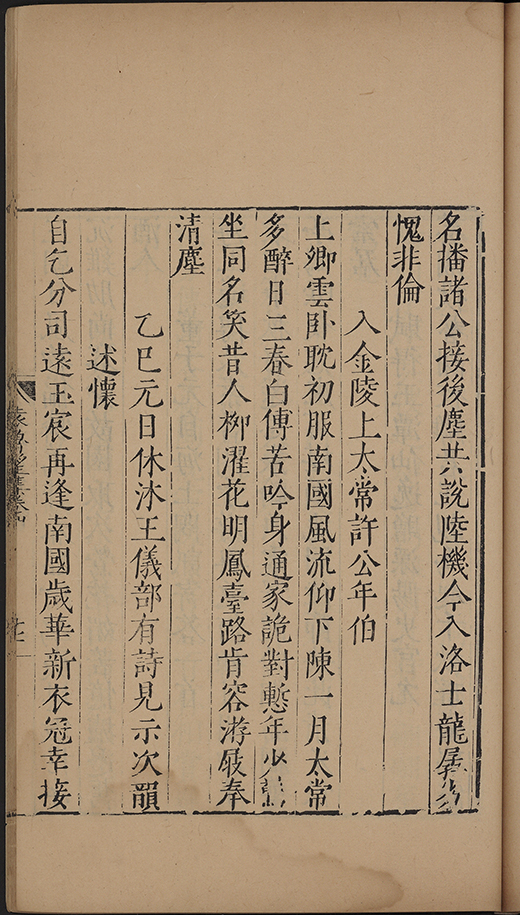 名播諸公接後塵共說陸機今入洛士龍孱
愧非倫
入金陵上太常許公年伯
上卿雲臥耽初服南國風流仰下陳一月太常
多醉日三春白傅苦吟身通家詭對慙年少
坐同名笑昔人柳濯花明鳳臺路肯容游屐奉
清塵
乙巳元日休沐王儀部有詩見示次韻
述懷
自乞分司遠玉宸再逢南國歲華新衣冠幸接